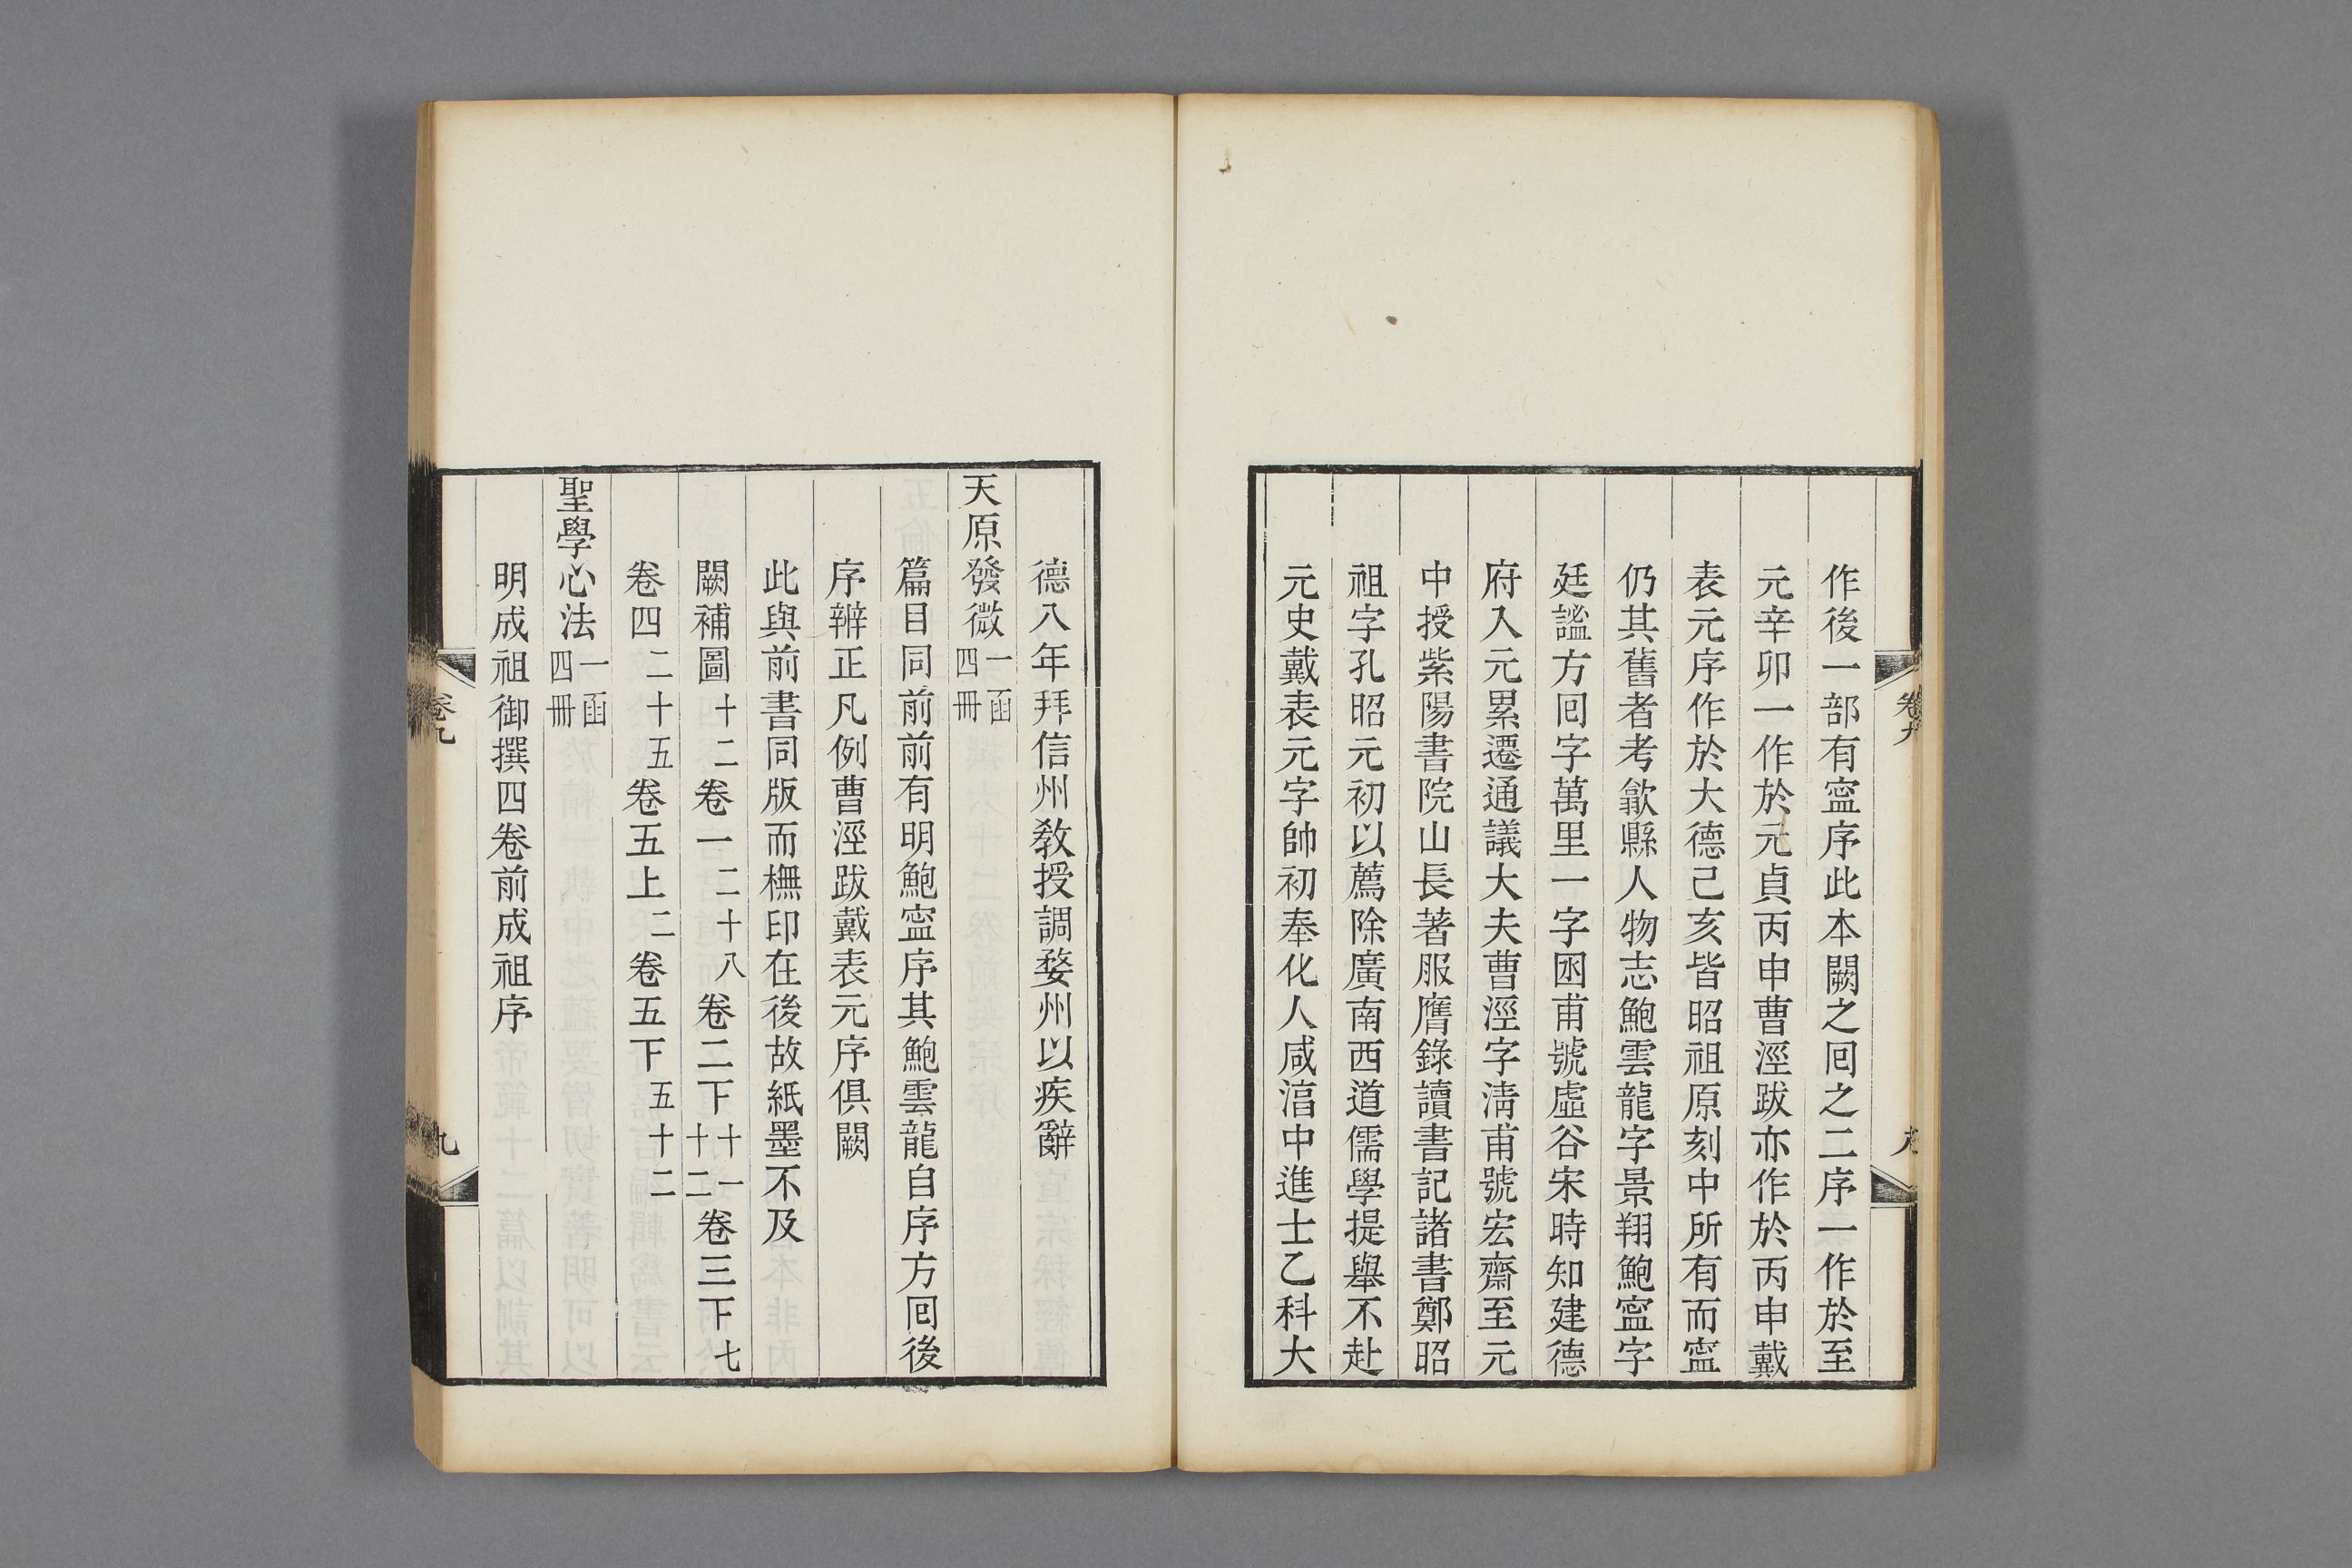 作後一部有寍序此本闕之囘之二序一作於至
元辛卯一作於元貞丙申曹涇跋亦作於丙申戴
表元序作於大德己亥皆昭祖原刻中所有而寍
仍其舊者考歙縣人物志鮑雲龍字景翔鮑寍字
廷謐方囘字萬里一字囦甫號虛谷宋時知建德
府入元累遷通議大夫曹涇字淸甫號宏齋至元
中授紫陽書院山長著服膺錄讀書記諸書鄭昭
祖字孔昭元初以薦除廣南西道儒學提舉不赴
元史戴表元字帥初奉化人咸湻中進士乙科大
德八年拜信州敎授調婺州以疾辭
天原發微一函四冊
篇目同前前有明鮑寍序其鮑雲龍自序方囘後
序辨正凡例曹涇跋戴表元序俱闕
此與前書同版而橅印在後故紙墨不及
闕補圖十二卷一二十八卷二下十一十二卷三下七
卷四二十五卷五上二卷五下五十二
聖學心法一函四冊
明成祖御撰四卷前成祖序
卷九
九